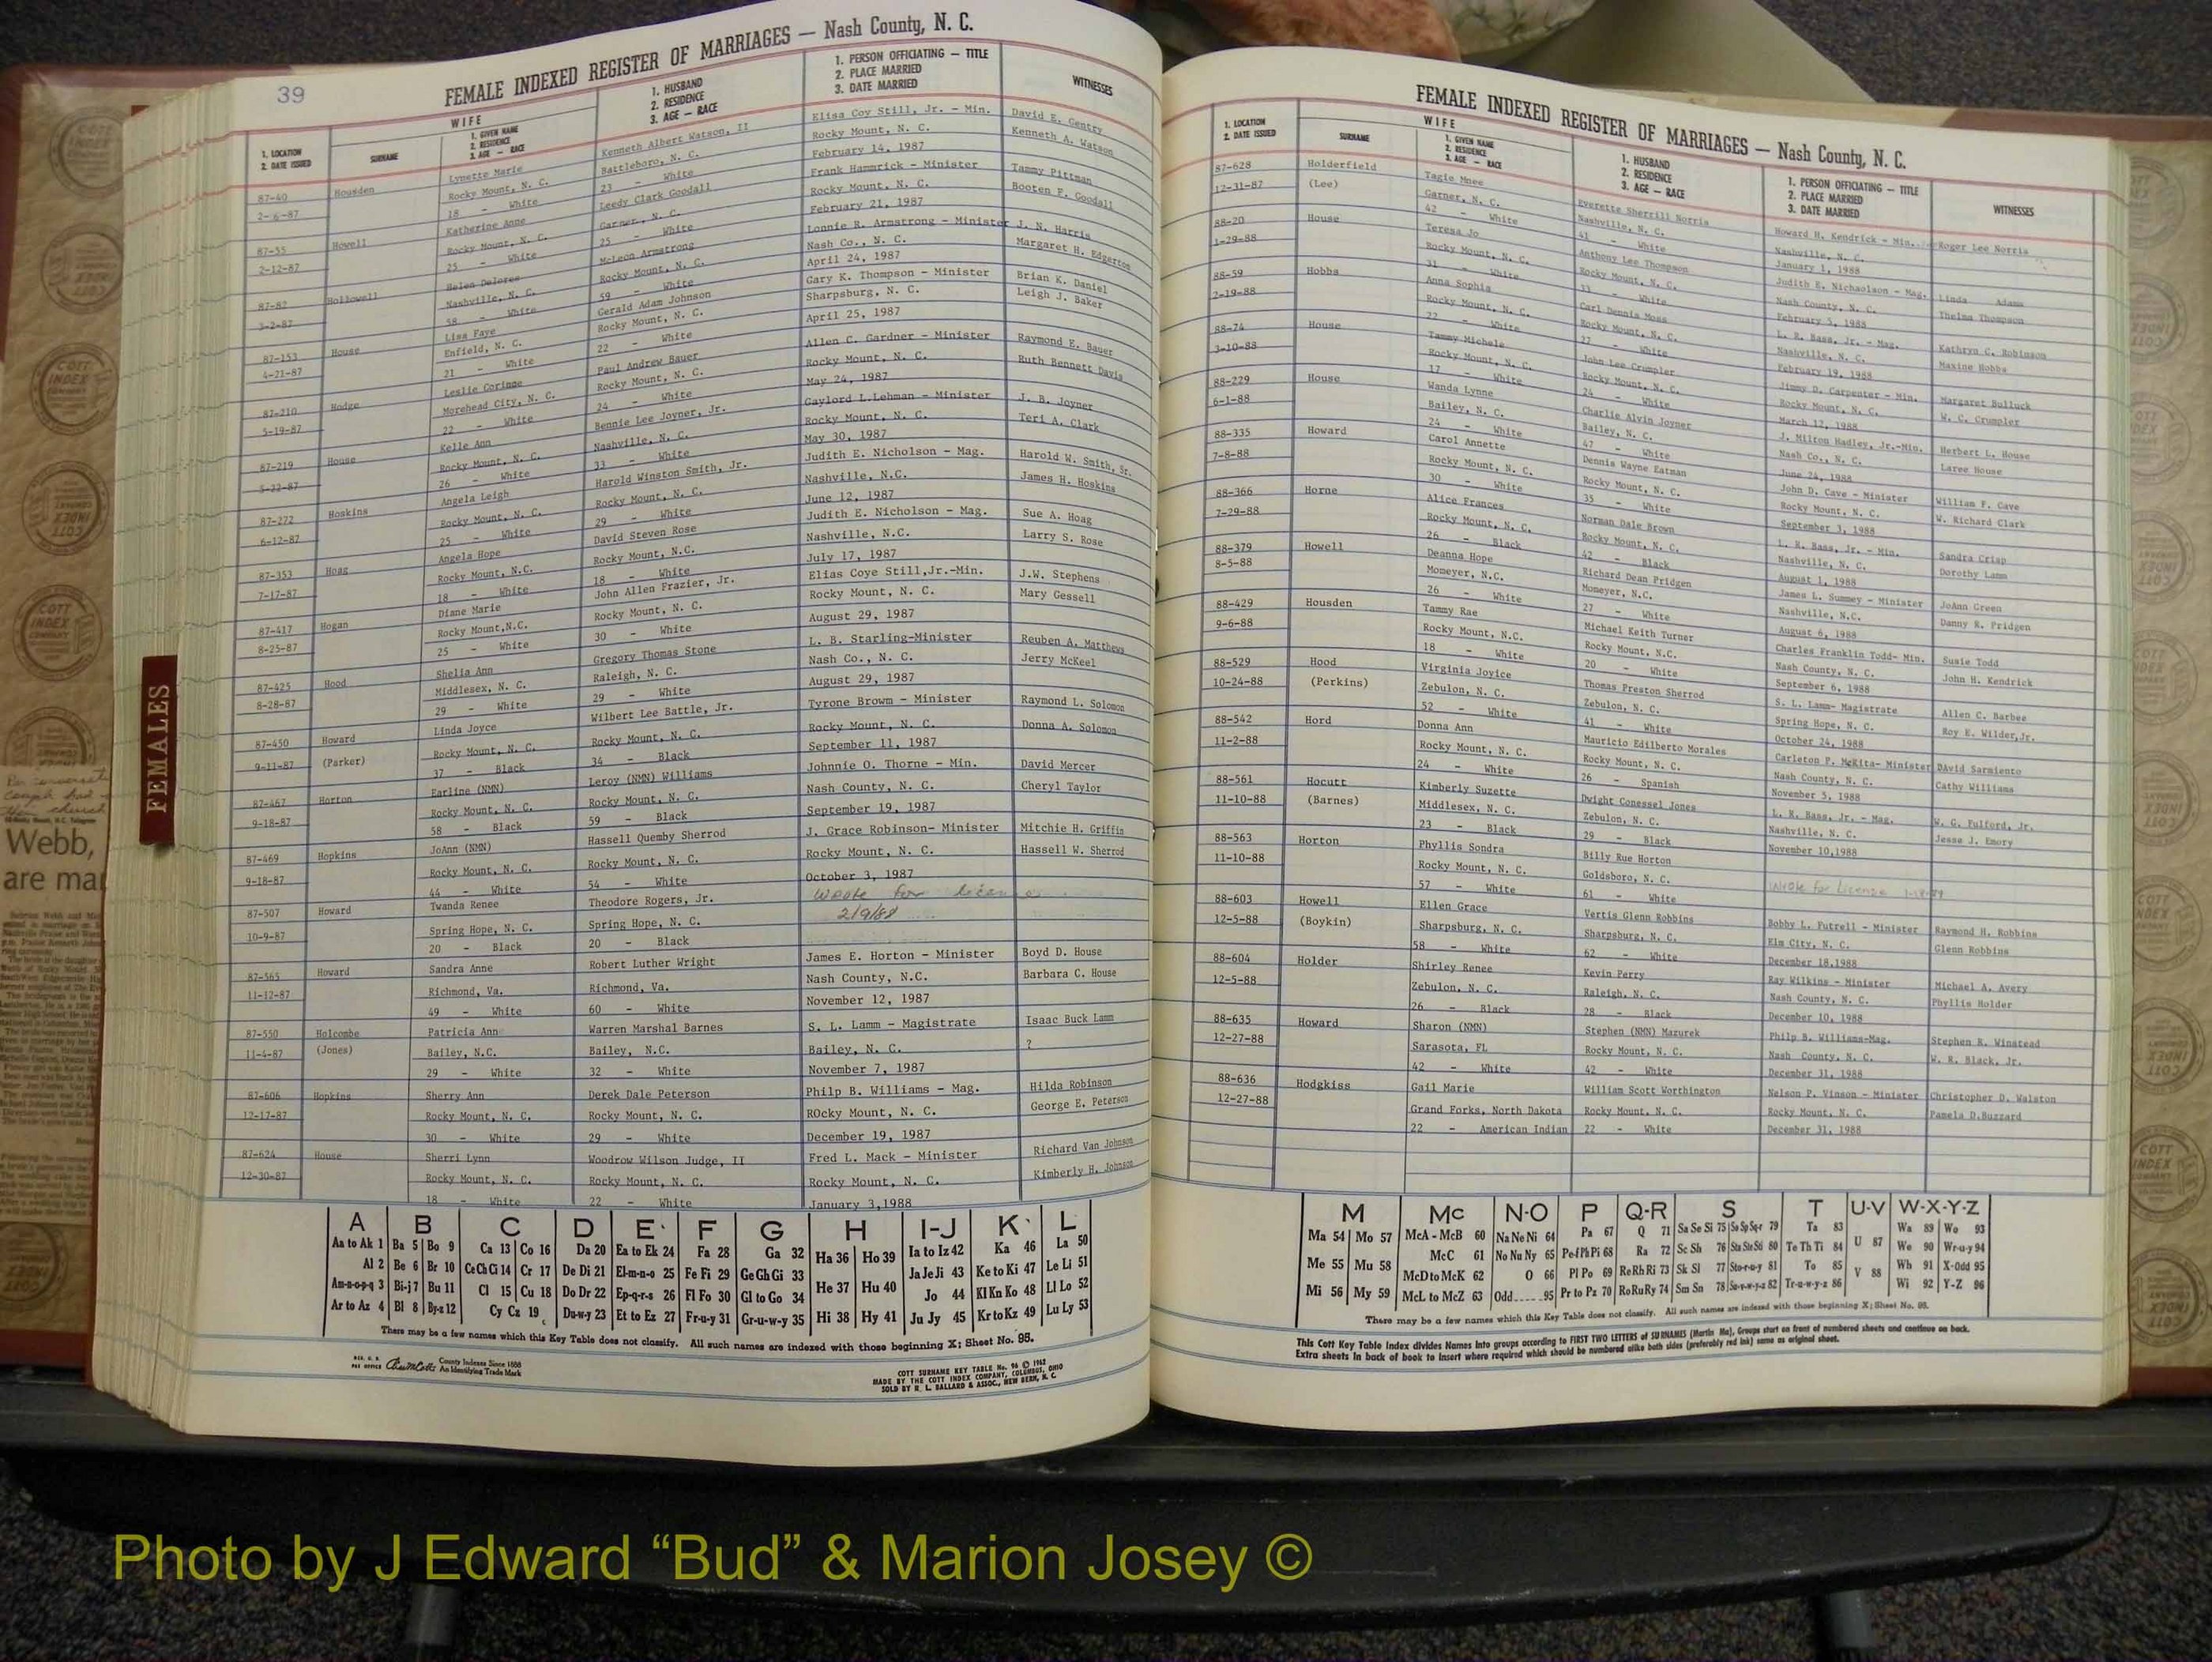 39
FEMALE INDEXED REGISTER OF MARRIAGES — Nash County, N. C.
1. LOCATION
2. DATE ISSUED
SURNAME
WIFE
1. GIVEN NAME
2. RESIDENCE
3. AGE — RACE
1. HUSBAND
2. RESIDENCE
3. AGE — RACE
1. PERSON OFFICIATING — TITLE
2. PLACE MARRIED
3. DATE MARRIED
WITNESSES
87-40 Housden Lynette Marie Kenneth Albert Watson, II Elisa Coy Still, Jr. - Min. David E. Gentry
2-6-87 Rocky Mount, N. C. Battleboro, N. C. Rocky Mount, N. C. Kenneth A. Watson
18 - White 23 - White February 14, 1987
87-55 Howell Katherine Anne Leedy Clark Goodall Frank Hammrick - Minister Tammy Pittman
2-12-87 Rocky Mount, N. C. Garner, N. C. Rocky Mount, N. C. Booten F. Goodall
25 - White 25 - White February 21, 1987
87-82 Hollowell Helen Delores McLeon Armstrong Lonnie R. Armstrong - Minister J. N. Harris
3-2-87 Nashville, N. C. Rocky Mount, N. C. Nash Co., N. C. Margaret H. Edgerton
58 - White 59 - White April 24, 1987
87-153 House Lisa Faye Gerald Adam Johnson Gary K. Thompson - Minister Brian K. Daniel
4-21-87 Enfield, N. C. Rocky Mount, N. C. Sharpsburg, N. C. Leigh J. Baker
21 - White 22 - White April 25, 1987
87-210 Hodge Leslie Corinne Paul Andrew Bauer Allen C. Gardner - Minister Raymond E. Bauer
5-19-87 Morehead City, N. C. Rocky Mount, N. C. Rocky Mount, N. C. Ruth Bennett Davis
22 - White 24 - White May 24, 1987
87-219 House Kelle Ann Bennie Lee Joyner, Jr. Gaylord L.Lehman - Minister J. B. Joyner
5-22-87 Rocky Mount, N. C. Nashville, N. C. Rocky Mount, N. C. Teri A. Clark
26 - White 33 - White May 30, 1987
87-272 Hoskins Angela Leigh Harold Winston Smith, Jr. Judith E. Nicholson - Mag. Harold W. Smith, Sr.
6-12-87 Rocky Mount, N. C. Rocky Mount, N. C. Nashville, N.C. James H. Hoskins
25 - White 29 - White June 12, 1987
87-353 Hoag Angela Hope David Steven Rose Judith E. Nicholson - Mag. Sue A. Hoag
7-17-87 Rocky Mount, N.C. Rocky Mount, N.C. Nashville, N.C. Larry S. Rose
18 - White 18 - White July 17, 1987
87-417 Hogan Diane Marie John Allen Frazier, Jr. Elias Coye Still,Jr.-Min. J.W. Stephens
8-25-87 Rocky Mount,N.C. Rocky Mount, N. C. Rocky Mount, N. C. Mary Gessell
25 - White 30 - White August 29, 1987
87-425 Hood Shelia Ann Gregory Thomas Stone L. B. Starling-Minister Reuben A. Matthews
8-28-87 Middlesex, N. C. Raleigh, N. C. Nash Co., N. C. Jerry McKeel
29 - White 29 - White August 29, 1987
87-450 Howard Linda Joyce Wilbert Lee Battle, Jr. Tyrone Brown - Minister Raymond L. Solomon
9-11-87 (Parker) Rocky Mount, N. C. Rocky Mount, N. C. Rocky Mount, N. C. Donna A. Solomon
37 - Black 34 - Black September 11, 1987
87-467 Horton Earline (NMN) Leroy (NMN) Williams Johnnie O. Thorne - Min. David Mercer
9-18-87 Rocky Mount, N. C. Rocky Mount, N. C. Nash County, N. C. Cheryl Taylor
58 - Black 59 - Black September 19, 1987
87-469 Hopkins JoAnn (NMN) Hassell Quemby Sherrod J. Grace Robinson- Minister Mitchie H. Griffin
9-18-87 Rocky Mount, N. C. Rocky Mount, N. C. Rocky Mount, N. C. Hassell W. Sherrod
44 - White 54 - White October 3, 1987
87-507 Howard Twanda Renee Theodore Rogers, Jr. Wrote for license
10-9-87 Spring Hope, N. C. Spring Hope, N. C. 2/9/88
20 - Black 20 - Black
87-565 Howard Sandra Anne Robert Luther Wright James E. Horton - Minister Boyd D. House
11-12-87 Richmond, Va. Richmond, Va. Nash County, N.C. Barbara C. House
49 - White 60 - White November 12, 1987
87-550 Holcombe Patricia Ann Warren Marshal Barnes S. L. Lamm - Magistrate Isaac Buck Lamm
11-4-87 (Jones) Bailey, N.C. Bailey, N.C. Bailey, N. C. ?
29 - White 32 - White November 7, 1987
87-606 Hopkins Sherry Ann Derek Dale Peterson Philp B. Williams - Mag. Hilda Robinson
12-17-87 Rocky Mount, N. C. Rocky Mount, N. C. ROcky Mount, N. C. George E. Peterson
30 - White 29 - White December 19, 1987
87-624 House Sherri Lynn Woodrow Wilson Judge, II Fred L. Mack - Minister Richard Van Johnson
12-30-87 Rocky Mount, N. C. Rocky Mount, N. C. Rocky Mount, N. C. Kimberly H. Johnson
18 - White 22 - White January 3,1988
A B C D E F G H I-J K L
Aa to Ak 1 Ba 5 Bo 9 Ca 13 Co 16 Da 20 Ea to Ek 24 Fa 28 Ga 32 Ha 36 Ho 39 Ia to Iz 42 Ka 46 La 50
Al 2 Be 6 Br 10 Ce Ch Ci 14 Cr 17 De Di 21 El-m-n-o 25 Fe Fi 29 Ge Gh Gi 33 He 37 Hu 40 Ja Je Ji 43 Ke to Ki 47 Le Li 51
Am-n-o-p-q 3 Bi-j 7 Bu 11 Cl 15 Cu 18 Do Dr 22 Ep-q-r-s 26 Fl Fo 30 Gl to Go 34 Jo 44 Kl Kn Ko 48 Ll Lo 52
Ar to Az 4 Bl 8 By-z 12 Cy Cz 19 Du-w-y 23 Et to Ez 27 Fr-u-y 31 Gr-u-w-y 35 Hi 38 Hy 41 Ju Jy 45 Kr to Kz 49 Lu Ly 53
There may be a few names which this Key Table does not classify. All such names are indexed with those beginning X; Sheet No. 95.
County Indexes Since 1888
An Identifying Trade Mark
COTT SURNAME KEY TABLE No. 96 © 1962
MADE BY THE COTT INDEX COMPANY, COLUMBUS, OHIO
SOLD BY R. L. BALLARD & ASSOC., NEW BERN, N. C.
FEMALES
Webb,
are ma
FEMALE INDEXED REGISTER OF MARRIAGES — Nash County, N. C.
1. LOCATION
2. DATE ISSUED
SURNAME
WIFE
1. GIVEN NAME
2. RESIDENCE
3. AGE — RACE
1. HUSBAND
2. RESIDENCE
3. AGE — RACE
1. PERSON OFFICIATING — TITLE
2. PLACE MARRIED
3. DATE MARRIED
WITNESSES
87-628 Holderfield Tagie Mnee Everette Sherrill Norris Howard H. Kendrick - Min. Roger Lee Norris
12-31-87 (Lee) Garner, N. C. Nashville, N. C. Nashville, N. C.
42 - White 41 - White January 1, 1988
88-20 House Teresa Jo Anthony Lee Thompson Judith E. Nichaolson - Mag. Linda Adams
1-29-88 Rocky Mount, N. C. Rocky Mount, N. C. Nash County, N. C. Thelma Thompson
31 - White 33 - White February 5, 1988
88-59 Hobbs Anna Sophia Carl Dennis Moss L. R. Bass, Jr. - Mag. Kathryn C. Robinson
2-19-88 Rocky Mount, N. C. Rocky Mount, N. C. Nashville, N. C. Maxine Hobbs
22 - White 27 - White February 19, 1988
88-74 House Tammy Michele John Lee Crumpler Jimmy D. Carpenter - Min. Margaret Bulluck
3-10-88 Rocky Mount, N. C. Rocky Mount, N. C. Rocky Mount, N. C. W. C. Crumpler
17 - White 24 - White March 12, 1988
88-229 House Wanda Lynne Charlie Alvin Joyner J. Milton Hadley, Jr.-Min. Herbert L. House
6-1-88 Bailey, N. C. Bailey, N. C. Nash Co., N. C. Laree House
24 - White 42 - White June 24, 1988
88-335 Howard Carol Annette Dennis Wayne Eatman John D. Cave - Minister William F. Cave
7-8-88 Rocky Mount, N. C. Rocky Mount, N. C. Rocky Mount, N. C. W. Richard Clark
30 - White 35 - White September 3, 1988
88-366 Horne Alice Frances Norman Dale Brown L. R. Bass, Jr. - Min. Sandra Crisp
7-29-88 Rocky Mount, N. C. Rocky Mount, N. C. Nashville, N. C. Dorothy Lamm
26 - Black 42 - Black August 1, 1988
88-379 Howell Deanna Hope Richard Dean Pridgen James L. Summey - Minister JoAnn Green
8-5-88 Momeyer, N.C. Momeyer, N.C. Nashville, N.C. Danny R. Pridgen
26 - White 27 - White August 6, 1988
88-429 Housden Tammy Rae Michael Keith Turner Charles Franklin Todd- Min. Susie Todd
9-6-88 Rocky Mount, N.C. Rocky Mount, N.C. Nash County, N. C. John H. Kendrick
18 - White 20 - White September 6, 1988
88-529 Hood Virginia Joyice Thomas Preston Sherrod S. L. Lamm- Magistrate Allen C. Barbee
10-24-88 (Perkins) Zebulon, N. C. Zebulon, N. C. Spring Hope, N. C. Roy E. Wilder,Jr.
52 - White 41 - White October 24, 1988
88-542 Hord Donna Ann Mauricio Edilberto Morales Carleton P. McKita- Minister DAvid Sarmiento
11-2-88 Rocky Mount, N. C. Rocky Mount, N. C. Nash County, N. C. Cathy Williams
24 - White 26 - Spanish November 5, 1988
88-561 Hocutt Kimberly Suzette Dwight Conessel Jones L. R. Bass, Jr. - Mag. W. G. Fulford, Jr.
11-10-88 (Barnes) Middlesex, N. C. Zebulon, N. C. Nashville, N. C. Jesse J. Emory
23 - Black 29 - Black November 10,1988
88-563 Horton Phyllis Sondra Billy Rue Horton Wrote for License
11-10-88 Rocky Mount, N. C. Goldsboro, N. C.
57 - White 61 - White
88-603 Howell Ellen Grace Vertis Glenn Robbins Bobby L. Futrell - Minister Raymond H. Robbins
12-5-88 (Boykin) Sharpsburg, N. C. Sharpsburg, N. C. Elm City, N. C. Glenn Robbins
58 - White 62 - White December 18,1988
88-604 Holder Shirley Renee Kevin Perry Ray Wilkins - Minister Michael A. Avery
12-5-88 Zebulon, N. C. Raleigh, N. C. Nash County, N. C. Phyllis Holder
26 - Black 28 - Black December 10, 1988
88-635 Howard Sharon (NMN) Stephen (NMN) Mazurek Philp B. Williams-Mag. Stephen R. Winstead
12-27-88 Sarasota, FL Rocky Mount, N. C. Nash County, N. C. W. R. Black, Jr.
42 - White 42 - White December 31, 1988
88-636 Hodgkiss Gail Marie William Scott Worthington Nelson P. Vinson - Minister Christopher D. Walston
12-27-88 Grand Forks, North Dakota Rocky Mount, N. C. Rocky Mount, N. C. Pamela D.Buzzard
22 - American Indian 22 - White December 31, 1988
M Mc N-O P Q-R S T U-V W-X-Y-Z
Ma 54 Mo 57 McA - McB 60 Na Ne Ni 64 Pa 67 Q 71 Sa Se Si 75 So Sp Sq-r 79 Ta 83 U 87 Wa 89 Wo 93
Me 55 Mu 58 McC 61 No Nu Ny 65 Pe-f Ph Pi 68 Ra 72 Sc Sh 76 Sta Ste Sti 80 Te Th Ti 84 We 90 Wr-u-y 94
McD to McK 62 O 66 Pl Po 69 Re Rh Ri 73 Sk Sl 77 Sto-r-u-y 81 To 85 V 88 Wh 91 X-Odd 95
Mi 56 My 59 McL to McZ 63 Odd 95 Pr to Pz 70 Ro Ru Ry 74 Sm Sn 78 Su-v-w-y-z 82 Tr-u-w-y-z 86 Wi 92 Y-Z 96
There may be a few names which this Key Table does not classify. All such names are indexed with those beginning X; Sheet No. 95.
This Cott Key Table Index divides Names into groups according to FIRST TWO LETTERS of SURNAMES (Martin Ma), Groups start on front of numbered sheets and continue on back.
Extra sheets in back of book to insert where required which should be numbered alike both sides (preferably red ink) same as original sheet.
Photo by J Edward “Bud” & Marion Josey ©